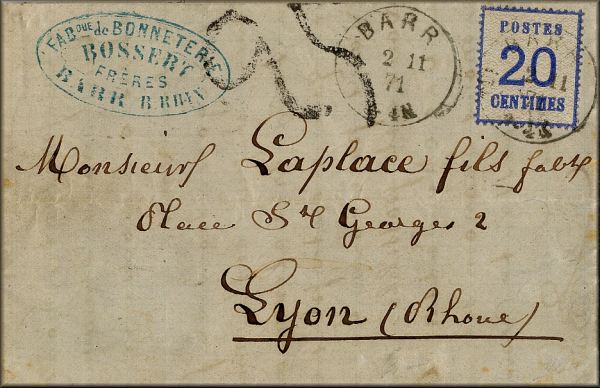 FAB^QUE de BONNETERIE
BOSSERT
FRÈRES
BARR B. RHIN
25
BARR
2 11
71
POSTES
20
CENTIMES
Monsieur Laplace fils fabt
Place St Georges 2
Lyon (Rhone)